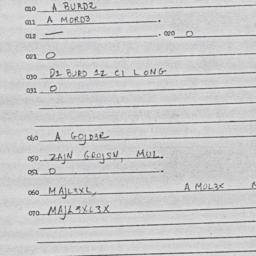 010 A BURD2
011 A MORD3 .
012 — . 020 O
021 O
030 D1 BURD 12 C1 LONG
031 O
040 A GOJD3R
050 ZAJN GROJSN, MUL.
051 O .
060 MAJL9XL, A MUL3X M
070 MAJL9XL3X